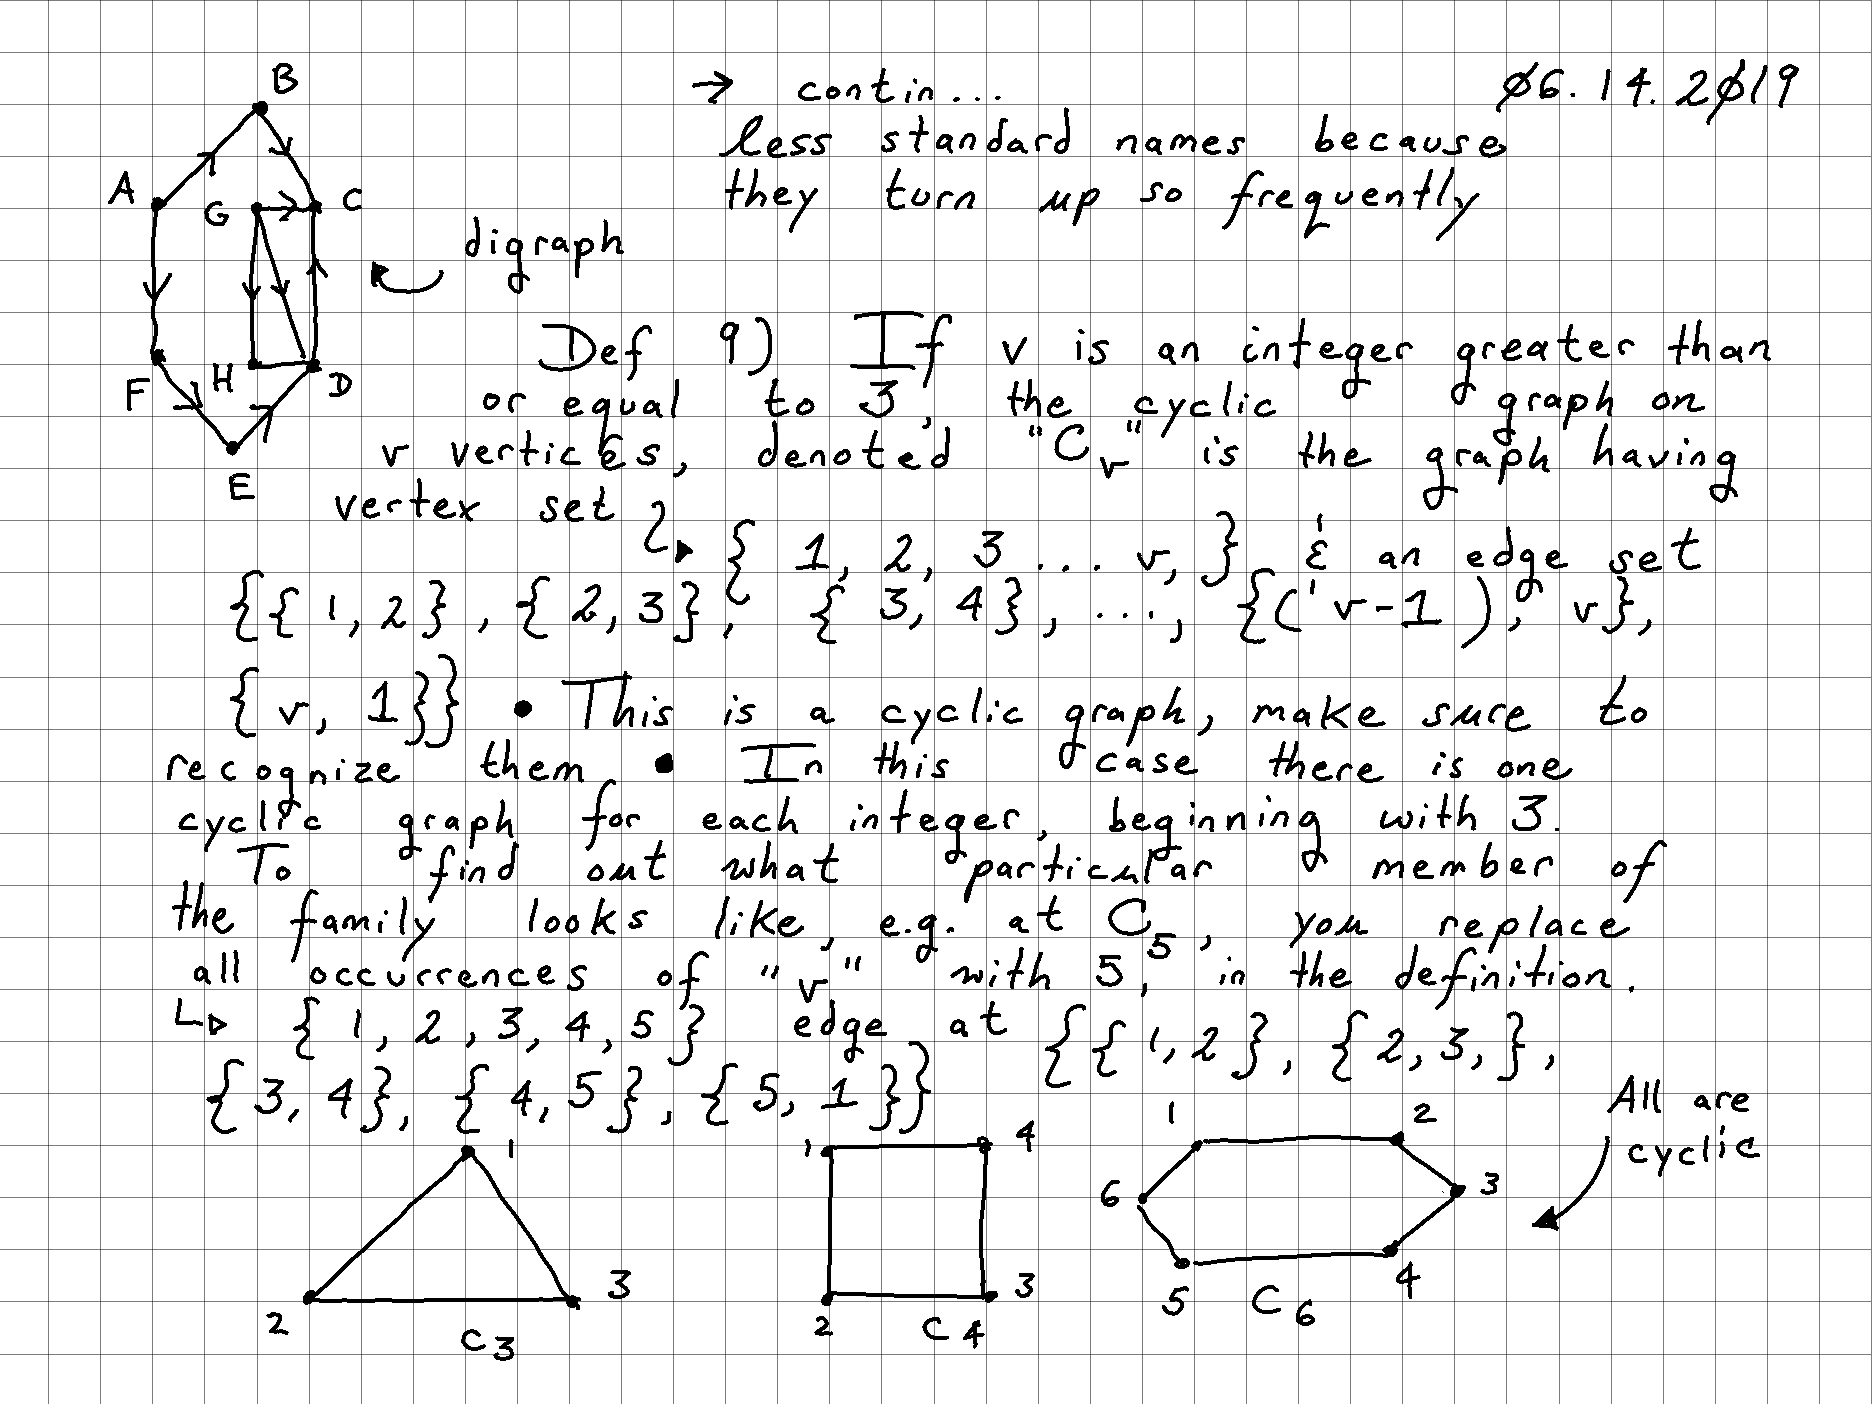 B
→ contin... 06.14.2019
less standard names because
they turn up so frequently
A
G
C
digraph
F
H
D
E
Def 9) If v is an integer greater than
or equal to 3, the cyclic graph on
v vertices, denoted "Cv" is the graph having
vertex set
{ 1, 2, 3 ... v, } & an edge set
{{ 1, 2 } , { 2, 3 }, { 3, 4 } , ..., {( v-1 ), v},
{ v, 1 }} • This is a cyclic graph, make sure to
recognize them • In this case there is one
cyclic graph for each integer, beginning with 3.
To find out what particular member of
the family looks like, e.g. at C5, you replace
all occurrences of "v" with 5, in the definition.
{ 1, 2 , 3, 4, 5 } edge at {{ 1, 2 }, { 2, 3, },
{ 3, 4 }, { 4, 5 } , { 5, 1 }}
All are
cyclic
1
2
3
C3
1
4
2
3
C4
1
2
6
3
5
4
C6